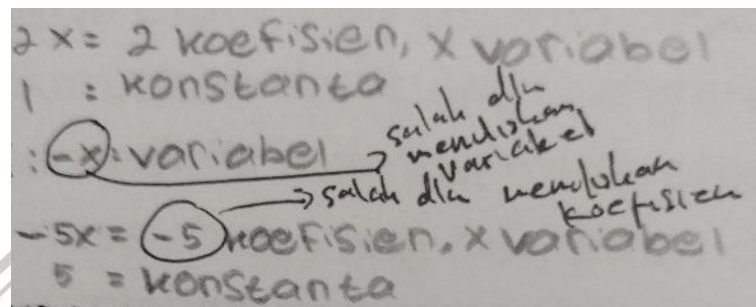 2x = 2 koefisien, x variabel
1 : konstanta
: -x : variabel
salah dlm
menuliskan
variabel
salah dlm menuliskan
koefisien
-5x = -5 koefisien, x variabel
5 = konstanta